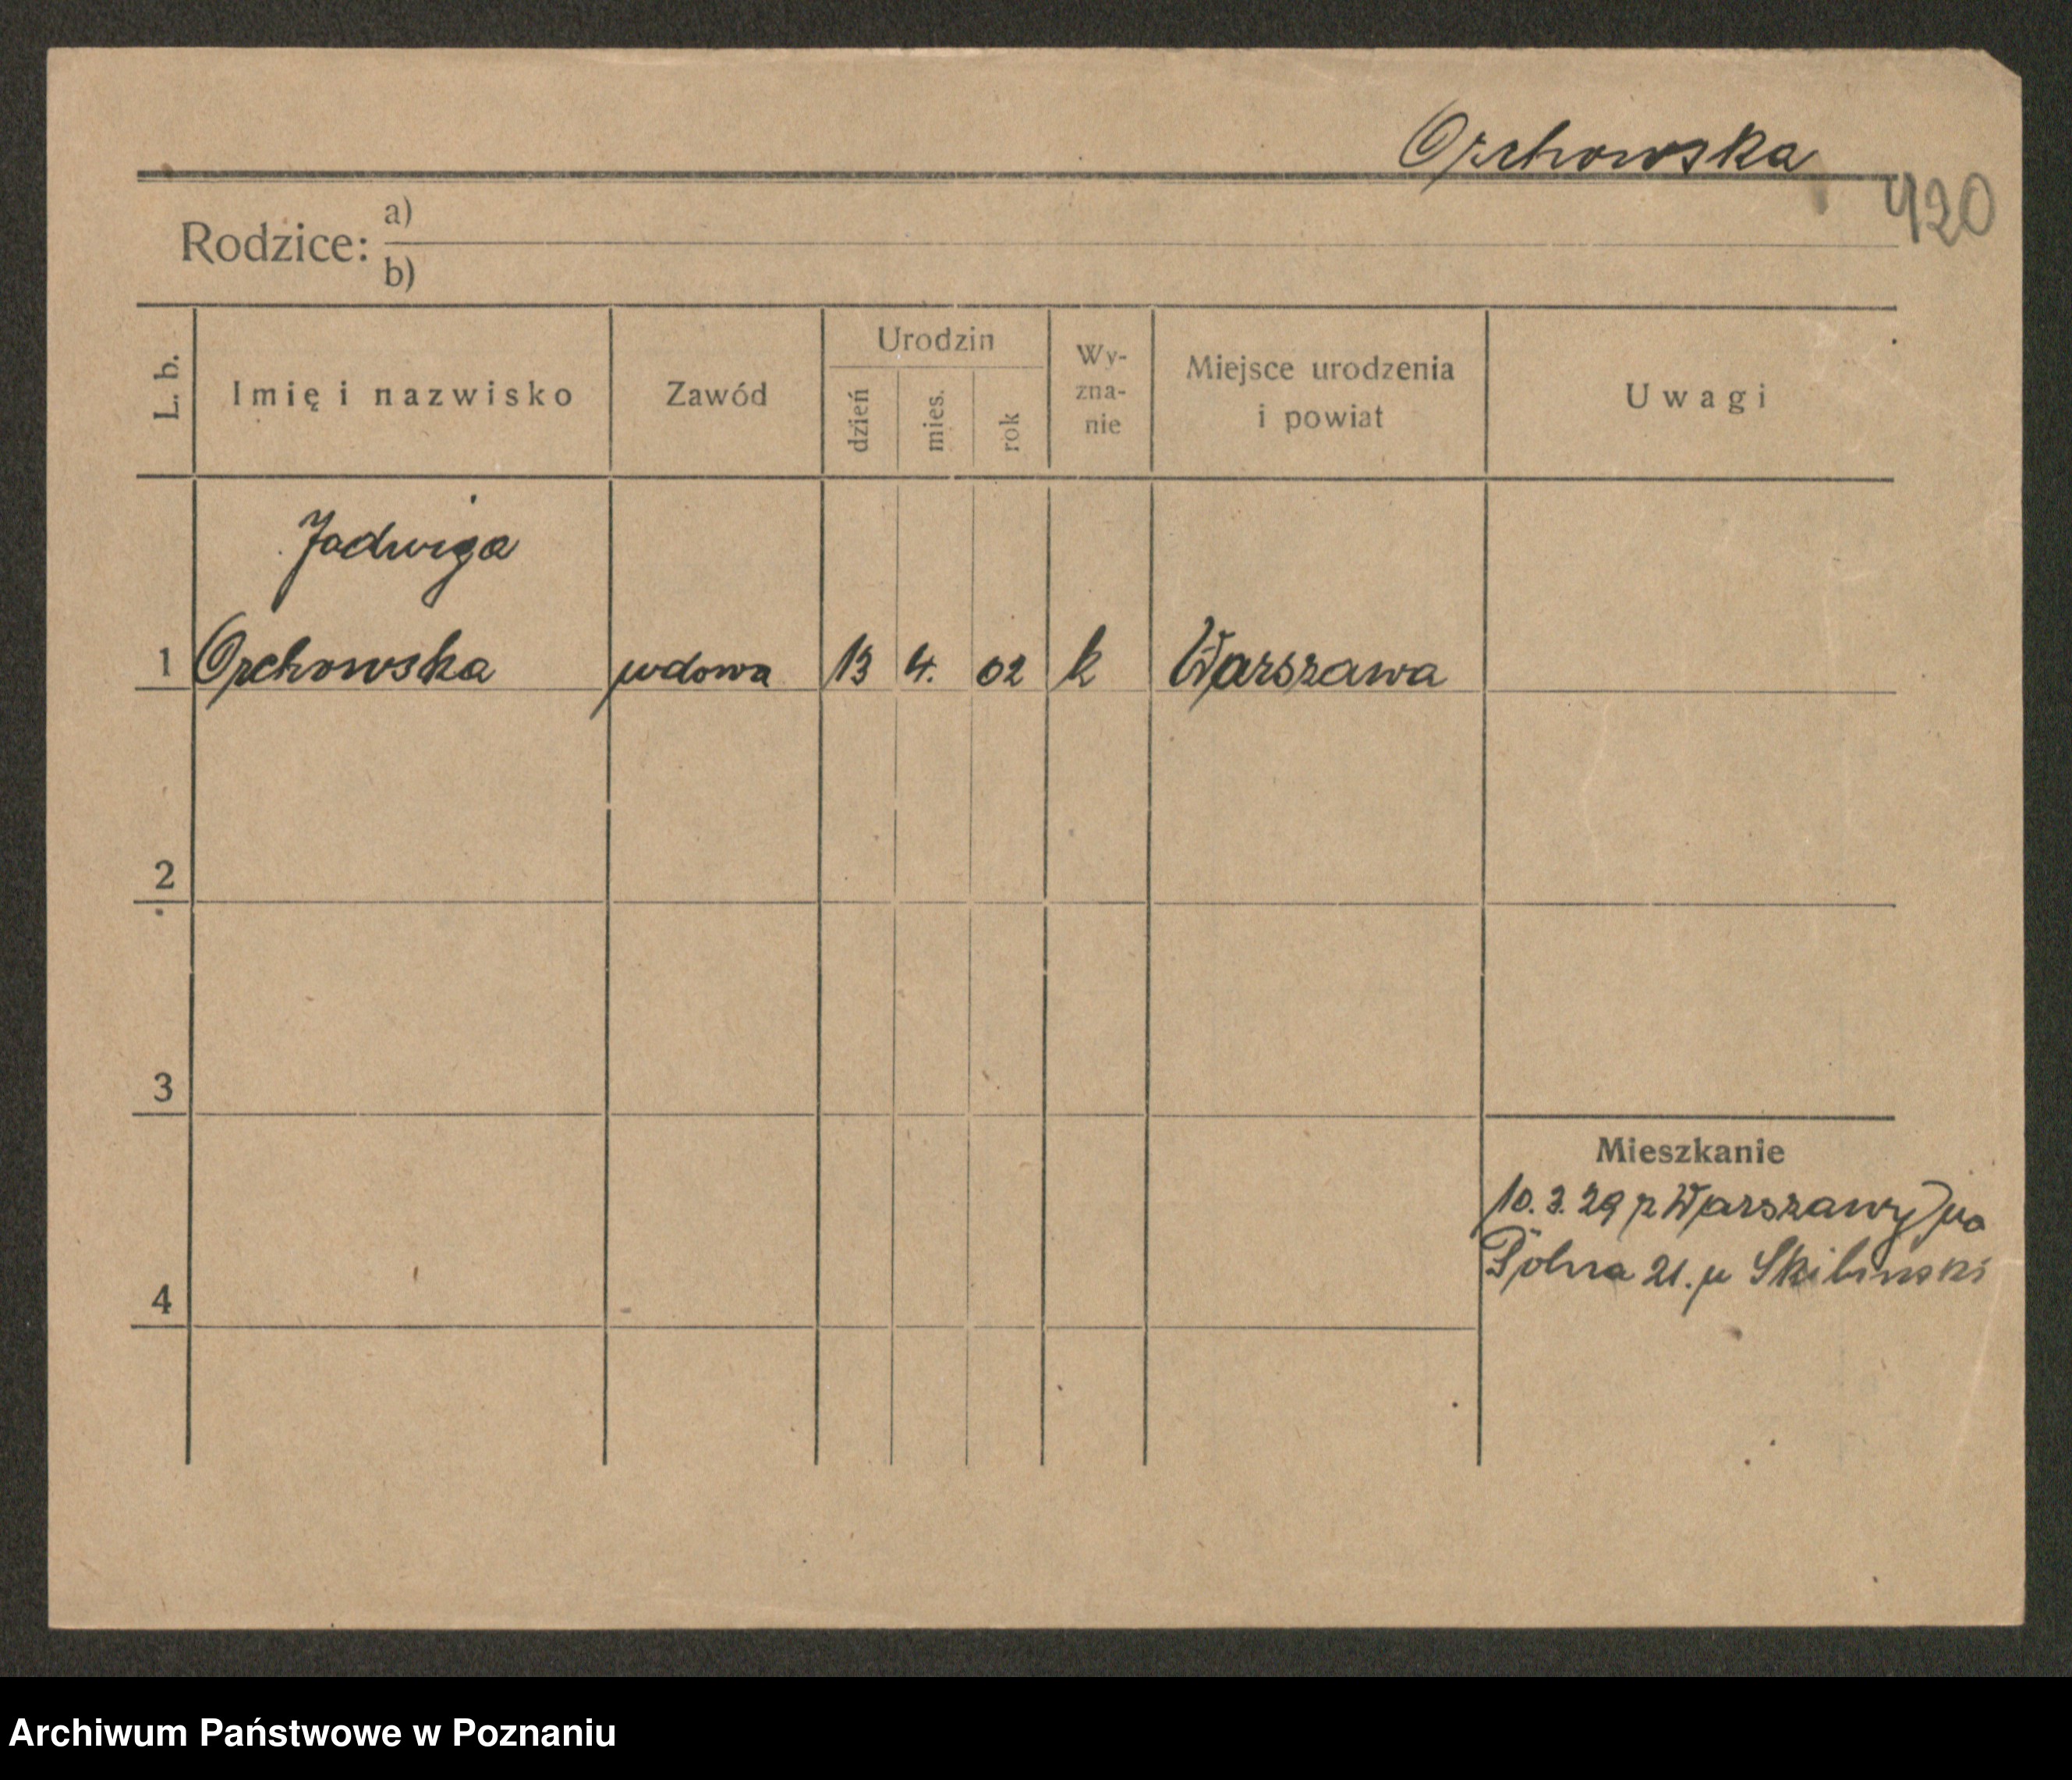 Orchowska
420
Rodzice: a)
b)
L. b.
Imię i nazwisko
Zawód
Urodzin
dzień
mies.
rok
Wy-
zna-
nie
Miejsce urodzenia
i powiat
Uwagi
Jadwiga
1 Orchowska wdowa 13 4. 02 k Warszawa
2
3
4
Mieszkanie
10.3.29 z Warszawy
Polna 21. u Skibinski
Archiwum Państwowe w Poznaniu